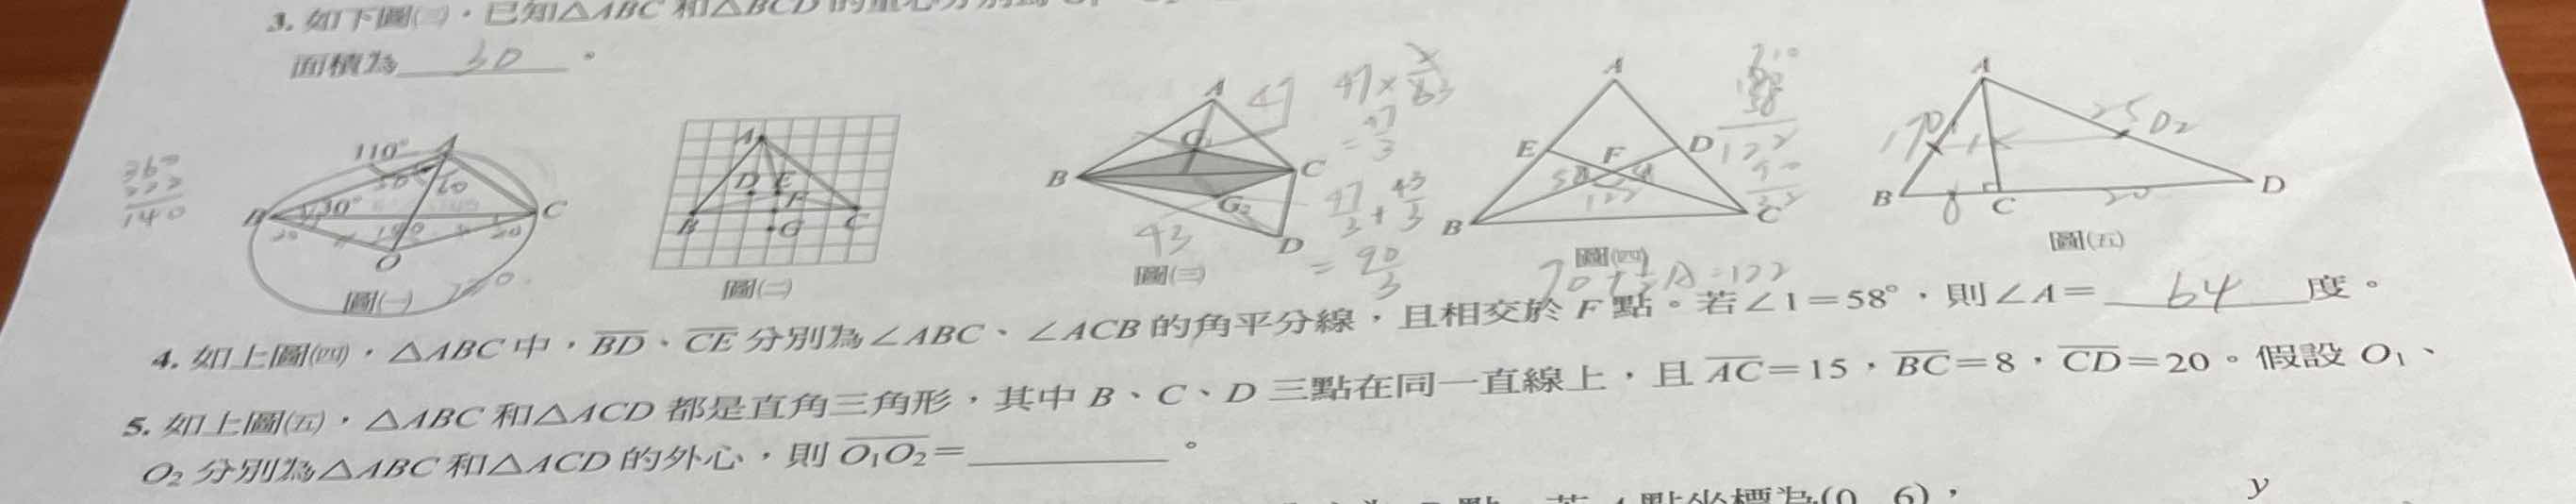 3. 如下圖㈢，已知△ABC 和△BCD 的重心分別為
面積為 30 。
A 47
47×
110°
A
50 60
B 30° C
20 20
O
360
140
圖㈠
A
D E
F
B G C
圖㈡
A
G₁
B C
G₂
D
43
= 47/3
47/3 + 43/3
= 90/3
圖㈢
A
E F D
58
122
B C
圖㈣
122
A
17 O₁ 15 25 O₂
B 8 C 20 D
圖㈤
90+½A=122
4. 如上圖㈣，△ABC 中，BD、CE 分別為∠ABC、∠ACB 的角平分線，且相交於 F 點。若∠1＝58°，則∠A＝ 64 度。
5. 如上圖㈤，△ABC 和△ACD 都是直角三角形，其中 B、C、D 三點在同一直線上，且 AC＝15，BC＝8，CD＝20。假設 O₁、
O₂ 分別為△ABC 和△ACD 的外心，則 O₁O₂＝ 。
(0, 6)，
y